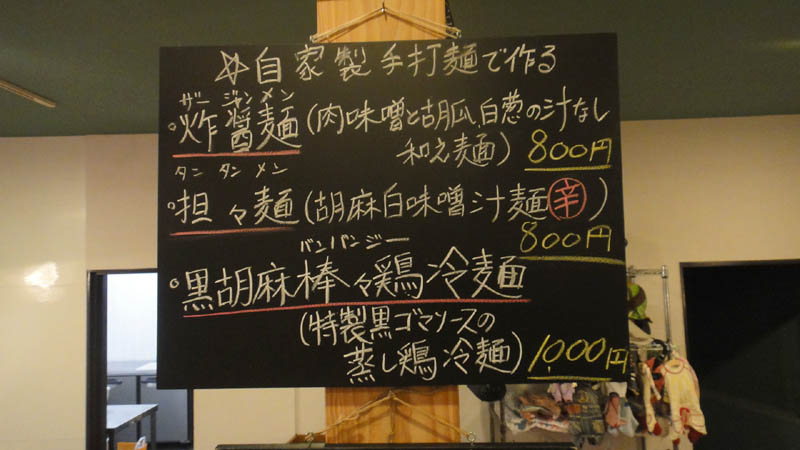 ☆自家製手打麺で作る
ザージャンメン
・炸醤麺(肉味噌と胡瓜、白葱の汁なし
和え麺) 800円
タンタンメン
・担々麺(胡麻白味噌汁麺辛)
800円
バンバンジー
・黒胡麻棒々鶏冷麺
(特製黒ゴマソースの
蒸し鶏冷麺) 1,000円